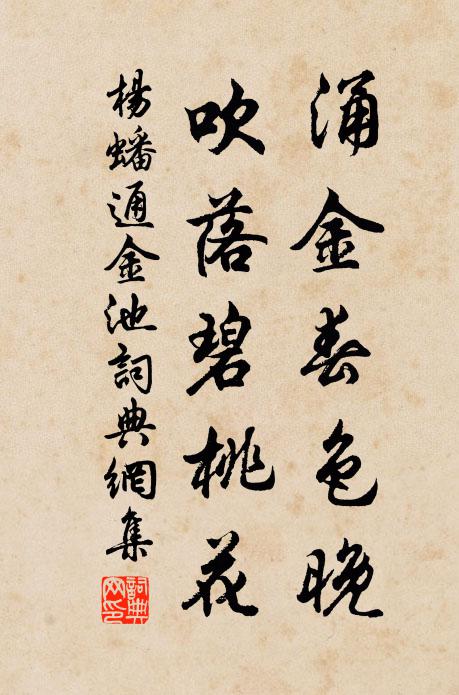 涌金春色晚
吹落碧桃花
楊蟠通金池詞典網集
詞典網印